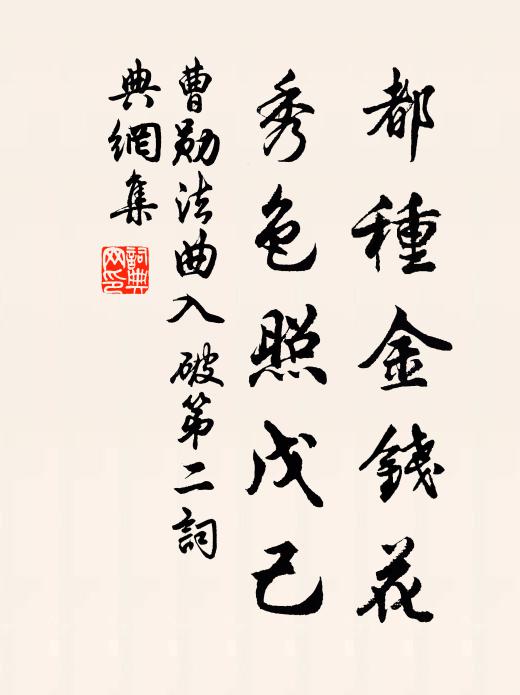 都種金錢花
秀色照戊己
曹勛法曲入破第二詞
典網集
詞典網印